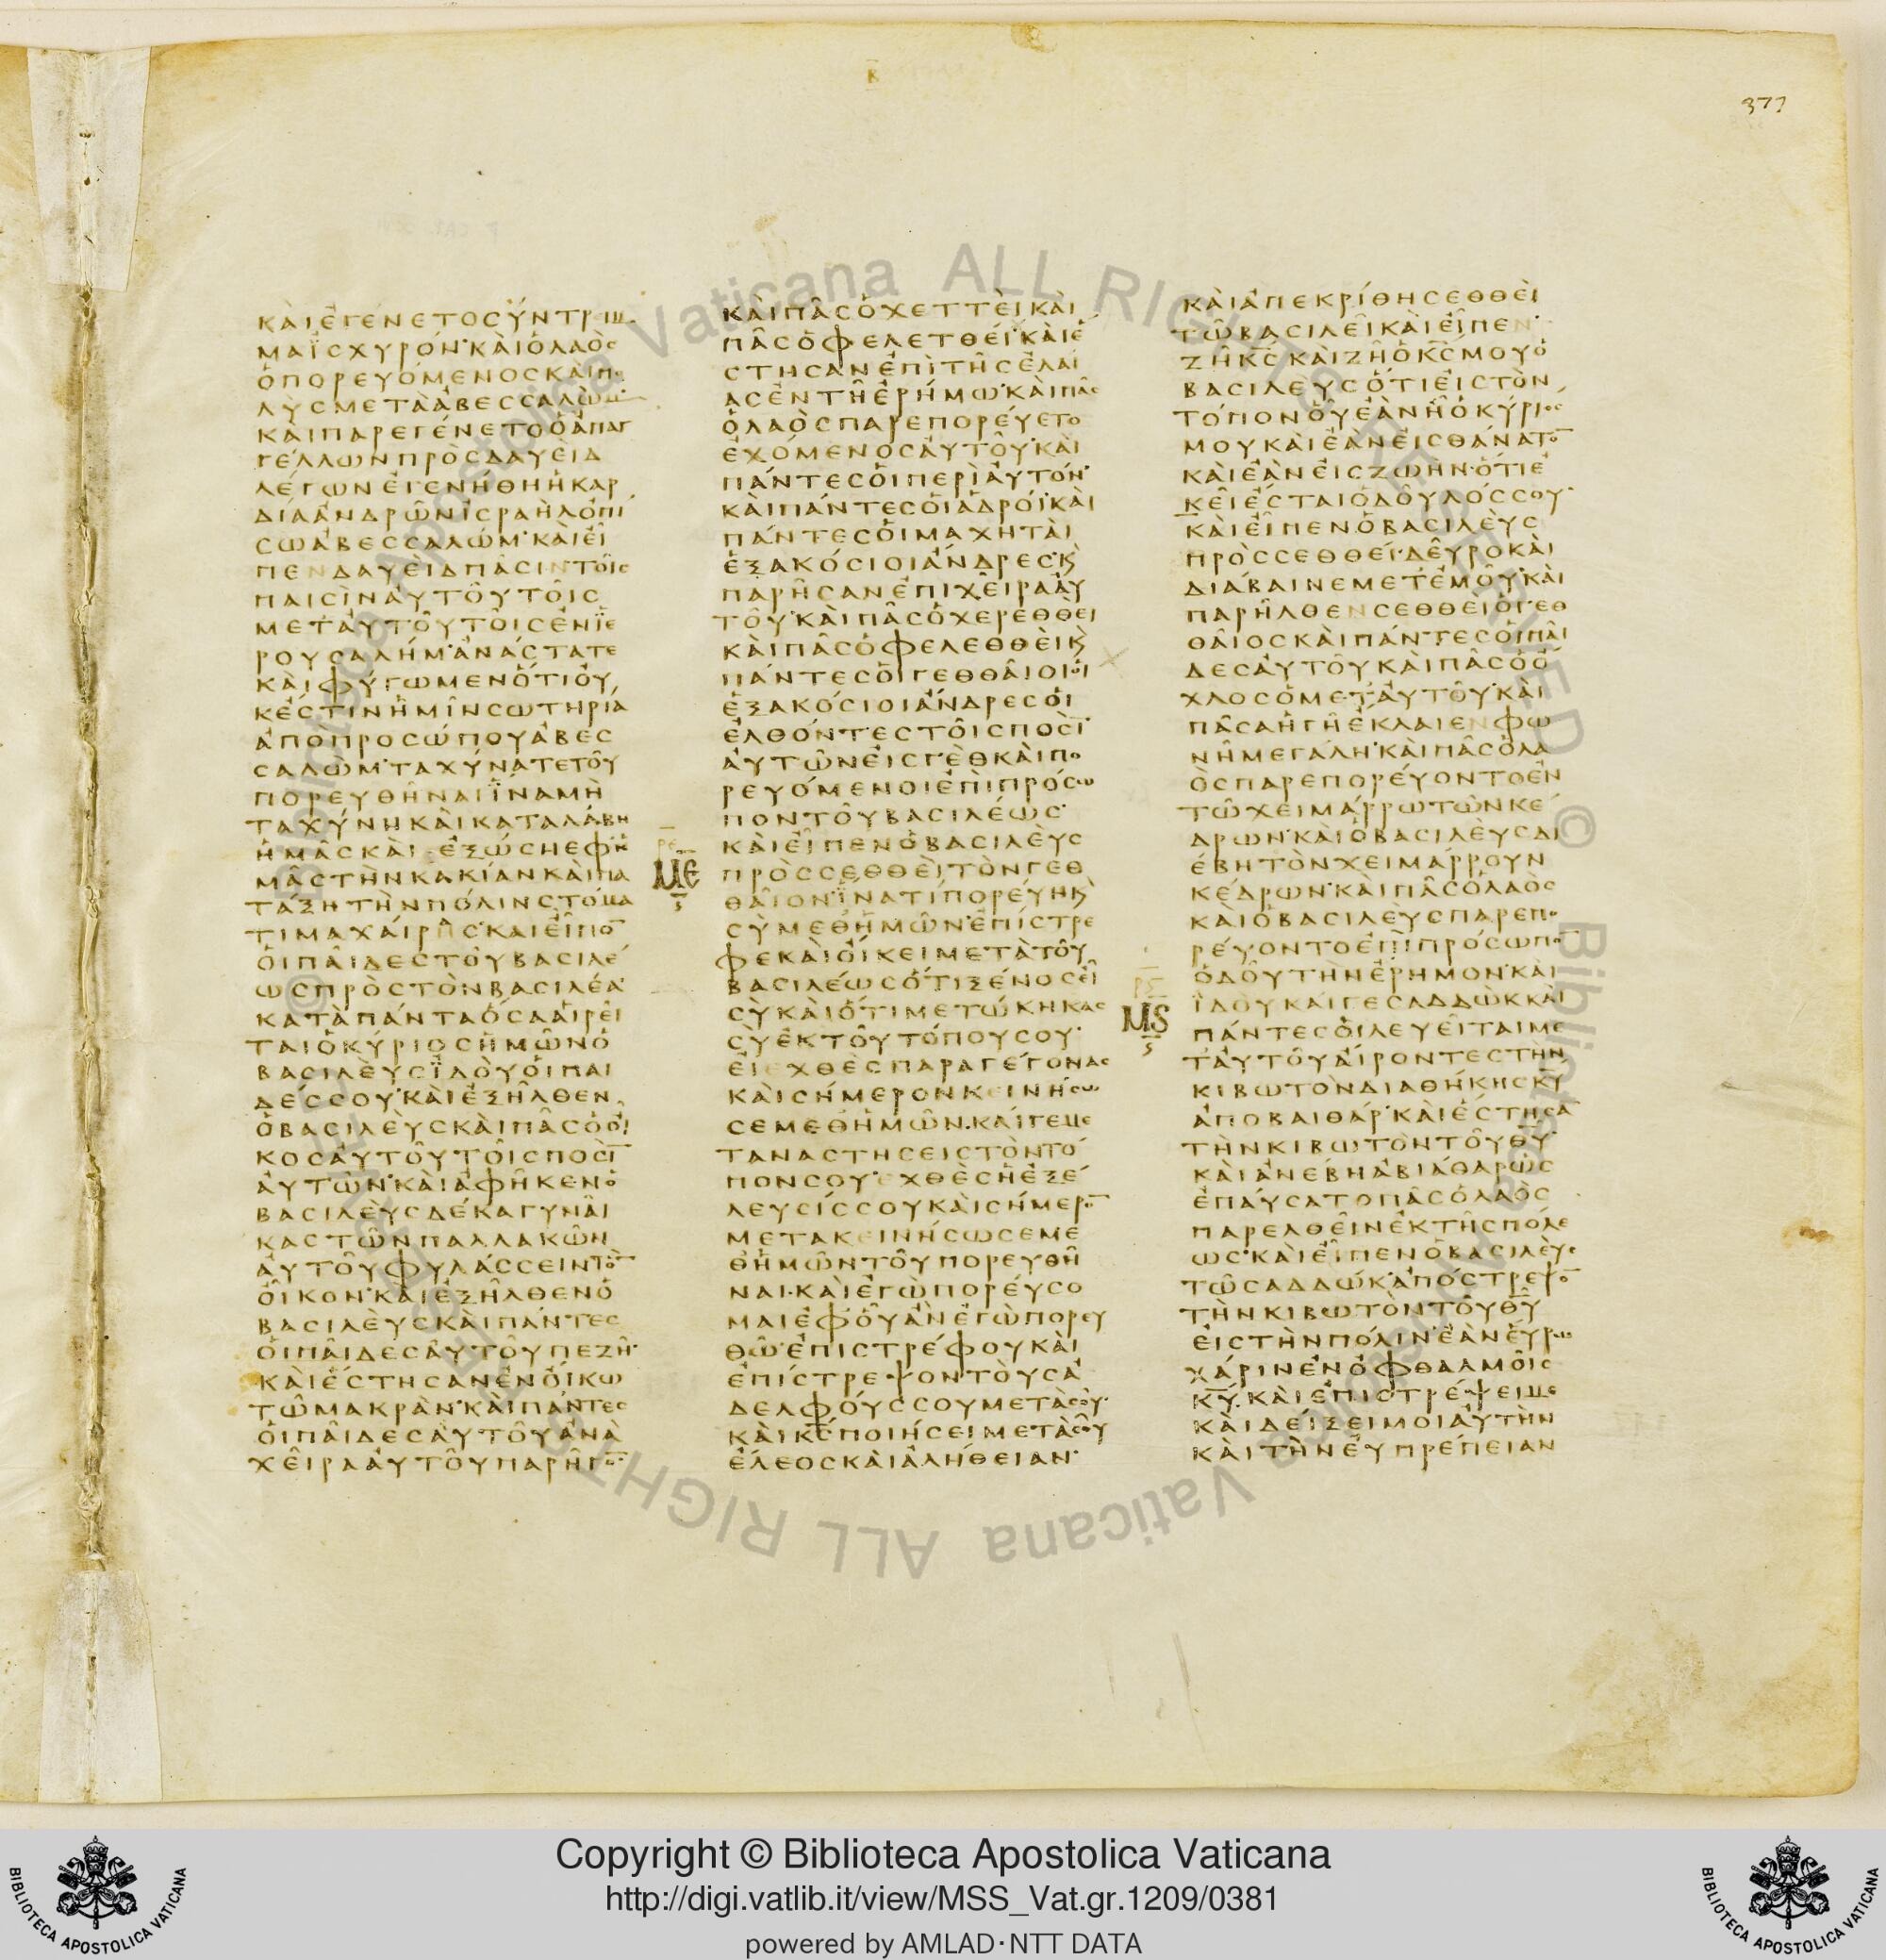 377
ΚΑΙΕΓΕΝΕΤΟΣΥΝΤΡΙΜ
ΜΑΪΣΧΥΡΟΝ·ΚΑΙΟΛΑΟΣ
ΟΠΟΡΕΥΟΜΕΝΟΣΚΑΙΠΟ
ΛΥΣΜΕΤΑΑΒΕΣΣΑΛΩΜ·
ΚΑΙΠΑΡΕΓΕΝΕΤΟΟΑΠΑΓ
ΓΕΛΛΩΝΠΡΟΣΔΑΥΕΙΔ
ΛΕΓΩΝΕΓΕΝΗΘΗΗΚΑΡ
ΔΙΑΑΝΔΡΩΝΙΣΡΑΗΛΟΠΙ
ΣΩΑΒΕΣΣΑΛΩΜ·ΚΑΙΕΙ
ΠΕΝΔΑΥΕΙΔΠΑΣΙΝΤΟΙΣ
ΠΑΙΣΙΝΑΥΤΟΥΤΟΙΣ
ΜΕΤΑΥΤΟΥΤΟΙΣΕΝΪΕ
ΡΟΥΣΑΛΗΜ·ΑΝΑΣΤΑΤΕ
ΚΑΙΦΥΓΩΜΕΝΟΤΙΟΥ
ΚΕΣΤΙΝΗΜΙΝΣΩΤΗΡΙΑ
ΑΠΟΠΡΟΣΩΠΟΥΑΒΕΣ
ΣΑΛΩΜ·ΤΑΧΥΝΑΤΕΤΟΥ
ΠΟΡΕΥΘΗΝΑΙΪΝΑΜΗ
ΤΑΧΥΝΗΚΑΙΚΑΤΑΛΑΒΗ
ΗΜΑΣΚΑΙ ΕΞΩΣΗΕΦΗ
ΜΑΣΤΗΝΚΑΚΙΑΝΚΑΙΠΑ
ΤΑΞΗΤΗΝΠΟΛΙΝΣΤΟΜΑ
ΤΙΜΑΧΑΙΡΗΣ·ΚΑΙΕΙΠΟ̅
ΟΙΠΑΙΔΕΣΤΟΥΒΑΣΙΛΕ
ΩΣΠΡΟΣΤΟΝΒΑΣΙΛΕΑ·
ΚΑΤΑΠΑΝΤΑΟΣΑΑΙΡΕΙ
ΤΑΙΟΚΥΡΙΟΣΗΜΩΝΟ
ΒΑΣΙΛΕΥΣΪΔΟΥΟΙΠΑΙ
ΔΕΣΣΟΥ·ΚΑΙΕΞΗΛΘΕΝ
ΟΒΑΣΙΛΕΥΣΚΑΙΠΑΣΟΟΙ
ΚΟΣΑΥΤΟΥΤΟΙΣΠΟΣΙ̅
ΑΥΤΩΝ·ΚΑΙΑΦΗΚΕΝΟ
ΒΑΣΙΛΕΥΣΔΕΚΑΓΥΝΑΙ
ΚΑΣΤΩΝΠΑΛΛΑΚΩΝ
ΑΥΤΟΥΦΥΛΑΣΣΕΙΝΤΟ̅
ΟΙΚΟΝ·ΚΑΙΕΞΗΛΘΕΝΟ
ΒΑΣΙΛΕΥΣΚΑΙΠΑΝΤΕΣ
ΟΙΠΑΙΔΕΣΑΥΤΟΥΠΕΖΗ·
ΚΑΙΕΣΤΗΣΑΝΕΝΟΙΚΩ
ΤΩΜΑΚΡΑΝ·ΚΑΙΠΑΝΤΕΣ
ΟΙΠΑΙΔΕΣΑΥΤΟΥΑΝΑ
ΧΕΙΡΑΑΥΤΟΥΠΑΡΗΓΟ̅
ΚΑΙΠΑΣΟΧΕΤΤΕΙΚΑΙ
ΠΑΣΟΦΕΛΕΤΘΕΙ·ΚΑΙΕ
ΣΤΗΣΑΝΕΠΙΤΗΣΕΛΑΙ
ΑΣΕΝΤΗΕΡΗΜΩ·ΚΑΙΠΑΣ
ΟΛΑΟΣΠΑΡΕΠΟΡΕΥΕΤΟ
ΕΧΟΜΕΝΟΣΑΥΤΟΥ·ΚΑΙ
ΠΑΝΤΕΣΟΙΠΕΡΙΑΥΤΟΝ·
ΚΑΙΠΑΝΤΕΣΟΙΑΔΡΟΙ·ΚΑΙ
ΠΑΝΤΕΣΟΙΜΑΧΗΤΑΙ
ΕΞΑΚΟΣΙΟΙΑΝΔΡΕΣ·Ϗ
ΠΑΡΗΣΑΝΕΠΙΧΕΙΡΑΑΥ
ΤΟΥ·ΚΑΙΠΑΣΟΧΕΡΕΘΘΕΙ
ΚΑΙΠΑΣΟΦΕΛΕΘΘΕΙϏ
ΠΑΝΤΕΣΟΙΓΕΘΘΑΙΟΙΟΙ
ΕΞΑΚΟΣΙΟΙΑΝΔΡΕΣΟΙ
ΕΛΘΟΝΤΕΣΤΟΙΣΠΟΣΙ̅
ΑΥΤΩΝΕΙΣΓΕΘΚΑΙΠΟ
ΡΕΥΟΜΕΝΟΙΕΠΙΠΡΟΣΩ
ΠΟΝΤΟΥΒΑΣΙΛΕΩΣ·
ΜΕ
ΚΑΙΕΙΠΕΝΟΒΑΣΙΛΕΥΣ
ΠΡΟΣΣΕΘΘΕΙΤΟΝΓΕΘ
ΘΑΙΟΝ·ΪΝΑΤΙΠΟΡΕΥΗϏ
ΣΥΜΕΘΗΜΩΝ·ΕΠΙΣΤΡΕ
ΦΕΚΑΙΟΙΚΕΙΜΕΤΑΤΟΥ
ΒΑΣΙΛΕΩΣΟΤΙΞΕΝΟΣΕΙ
ΣΥΚΑΙΟΤΙΜΕΤΩΚΗΚΑΣ
ΣΥΕΚΤΟΥΤΟΠΟΥΣΟΥ·
ΕΙΕΧΘΕΣΠΑΡΑΓΕΓΟΝΑΣ
ΚΑΙΣΗΜΕΡΟΝΚΕΙΝΗΣΩ
ΣΕΜΕΘΗΜΩΝ.ΚΑΙΓΕΜΕ
ΤΑΝΑΣΤΗΣΕΙΣΤΟΝΤΟ
ΠΟΝΣΟΥ·ΕΧΘΕΣΗΕΞΕ
ΛΕΥΣΙΣΣΟΥΚΑΙΣΗΜΕΡΟ̅
ΜΕΤΑΚΕΙΝΗΣΩΣΕΜΕ
ΘΗΜΩΝΤΟΥΠΟΡΕΥΘΗ
ΝΑΙ·ΚΑΙΕΓΩΠΟΡΕΥΣΟ
ΜΑΙΕΦΟΥΑΝΕΓΩΠΟΡΕΥ
ΘΩ·ΕΠΙΣΤΡΕΦΟΥΚΑΙ
ΕΠΙΣΤΡΕΨΟΝΤΟΥΣΑ
ΔΕΛΦΟΥΣΣΟΥΜΕΤΑΣΟΥ·
ΚΑΙΚ̅Σ̅ΠΟΙΗΣΕΙΜΕΤΑΣΟΥ
ΕΛΕΟΣΚΑΙΑΛΗΘΕΙΑΝ·
ΚΑΙΑΠΕΚΡΙΘΗΣΕΘΘΕΙ
ΤΩΒΑΣΙΛΕΙΚΑΙΕΙΠΕΝ
ΖΗΚ̅Σ̅ΚΑΙΖΗΟΚ̅Σ̅ΜΟΥΟ
ΒΑΣΙΛΕΥΣΟΤΙΕΙΣΤΟΝ
ΤΟΠΟΝΟΥΕΑΝΗΟΚΥΡΙΟΣ
ΜΟΥΚΑΙΕΑΝΕΙΣΘΑΝΑΤΟ̅
ΚΑΙΕΑΝΕΙΣΖΩΗΝ·ΟΤΙΕ
ΚΕΙΕΣΤΑΙΟΔΟΥΛΟΣΣΟΥ·
ΚΑΙΕΙΠΕΝΟΒΑΣΙΛΕΥΣ
ΠΡΟΣΣΕΘΘΕΙ·ΔΕΥΡΟΚΑΙ
ΔΙΑΒΑΙΝΕΜΕΤΕΜΟΥ·ΚΑΙ
ΠΑΡΗΛΘΕΝΣΕΘΘΕΙΟΓΕΘ
ΘΑΙΟΣΚΑΙΠΑΝΤΕΣΟΙΠΑΙ
ΔΕΣΑΥΤΟΥΚΑΙΠΑΣΟΟ
ΧΛΟΣΟΜΕΤΑΥΤΟΥ·ΚΑΙ
ΠΑΣΑΗΓΗΕΚΛΑΙΕΝΦΩ
ΝΗΜΕΓΑΛΗ·ΚΑΙΠΑΣΟΛΑ
ΟΣΠΑΡΕΠΟΡΕΥΟΝΤΟΕΝ
ΤΩΧΕΙΜΑΡΡΩΤΩΝΚΕ
ΔΡΩΝ·ΚΑΙΟΒΑΣΙΛΕΥΣΔΙ
ΕΒΗΤΟΝΧΕΙΜΑΡΡΟΥΝ
ΚΕΔΡΩΝ·ΚΑΙΠΑΣΟΛΑΟΣ
ΚΑΙΟΒΑΣΙΛΕΥΣΠΑΡΕΠΟ
ΡΕΥΟΝΤΟΕΠΙΠΡΟΣΩΠΟ̅
ΟΔΟΥΤΗΝΕΡΗΜΟΝ·ΚΑΙ
ΜϚ
ΪΔΟΥΚΑΙΓΕΣΑΔΔΩΚΚΑΙ
ΠΑΝΤΕΣΟΙΛΕΥΕΙΤΑΙΜΕ
ΤΑΥΤΟΥΑΙΡΟΝΤΕΣΤΗΝ
ΚΙΒΩΤΟΝΔΙΑΘΗΚΗΣΚ̅Υ̅
ΑΠΟΒΑΙΘΑΡ·ΚΑΙΕΣΤΗΣΑ̅
ΤΗΝΚΙΒΩΤΟΝΤΟΥΘ̅Υ̅·
ΚΑΙΑΝΕΒΗΑΒΙΑΘΑΡΩΣ
ΕΠΑΥΣΑΤΟΠΑΣΟΛΑΟΣ
ΠΑΡΕΛΘΕΙΝΕΚΤΗΣΠΟΛΕ
ΩΣ·ΚΑΙΕΙΠΕΝΟΒΑΣΙΛΕΥΣ
ΤΩΣΑΔΔΩΚ·ΑΠΟΣΤΡΕΨΟ̅
ΤΗΝΚΙΒΩΤΟΝΤΟΥΘ̅Υ̅
ΕΙΣΤΗΝΠΟΛΙΝ·ΕΑΝΕΥΡΩ
ΧΑΡΙΝΕΝΟΦΘΑΛΜΟΙΣ
Κ̅Υ̅·ΚΑΙΕΠΙΣΤΡΕΨΕΙΜΕ
ΚΑΙΔΕΙΞΕΙΜΟΙΑΥΤΗΝ
ΚΑΙΤΗΝΕΥΠΡΕΠΕΙΑΝ
Vaticana ALL RIGHTS RESERVED © Biblioteca Apostolica Vaticana ALL RIGHTS
Copyright © Biblioteca Apostolica Vaticana
http://digi.vatlib.it/view/MSS_Vat.gr.1209/0381
powered by AMLAD·NTT DATA
BIBLIOTECA APOSTOLICA VATICANA
BIBLIOTECA APOSTOLICA VATICANA